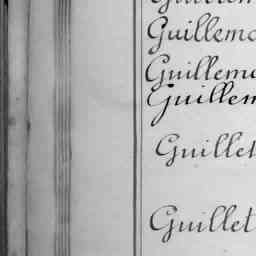 Guillemo
Guillemo
Guillem
Guillet
Guillet